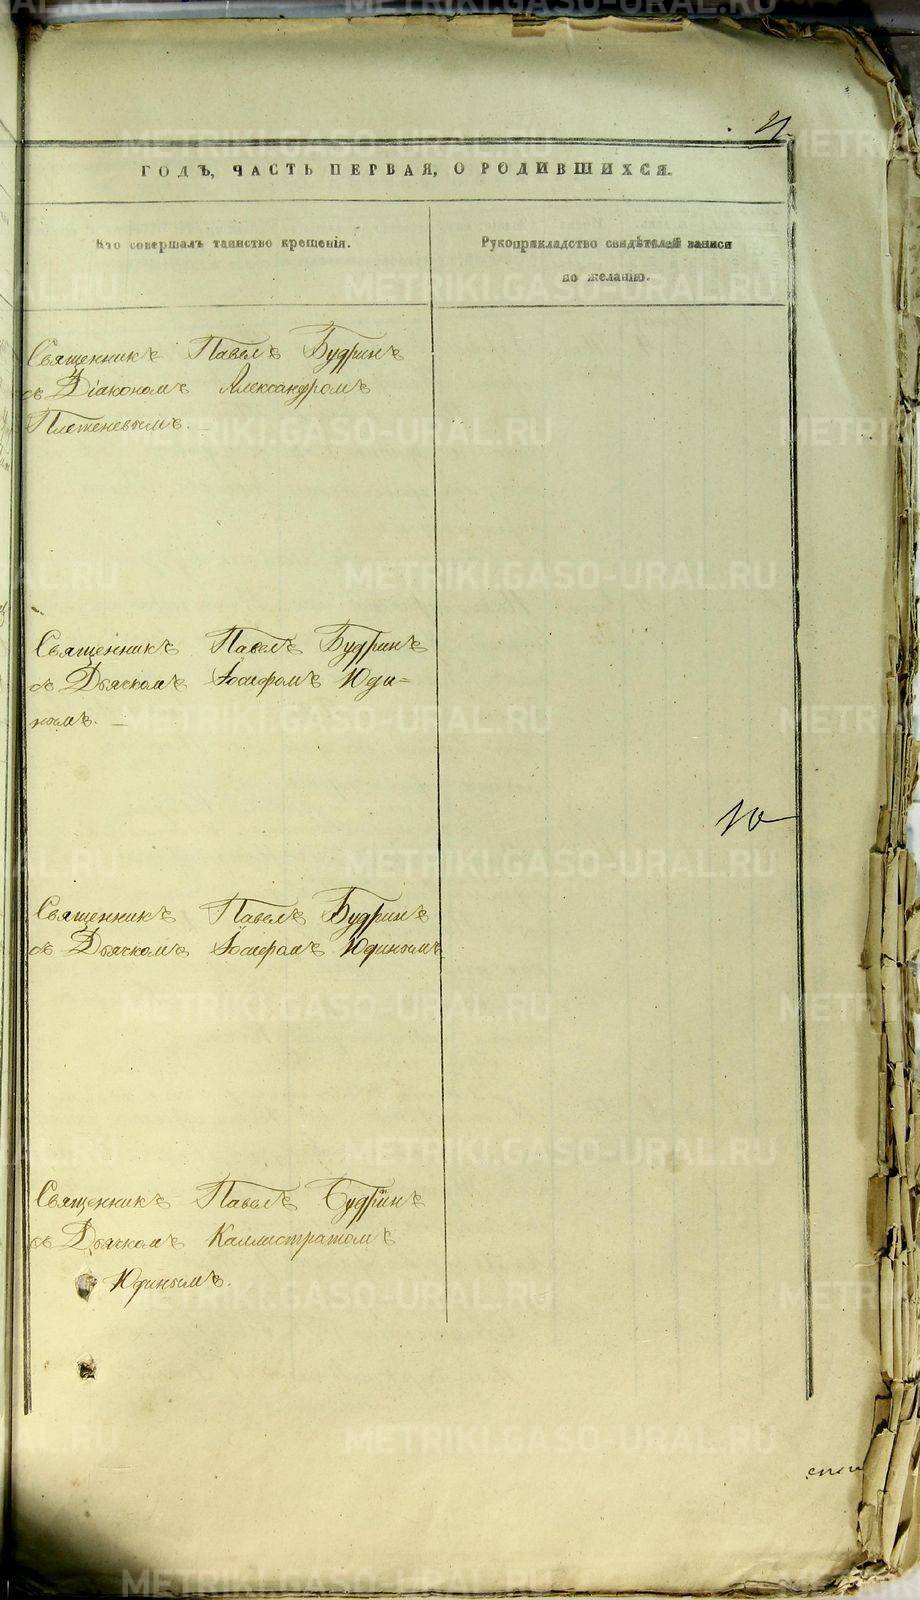 ГОДЪ, ЧАСТЬ ПЕРВАЯ, О РОДИВШИХСЯ.
Кто совершалъ таинство крещенія.
Рукоприкладство свидѣтелей записи
по желанію.
Священникъ Павелъ Будринъ
съ Діакономъ Александромъ
Плетеневымъ.
Священникъ Павелъ Будринъ
съ Дьячкомъ Іосифомъ Юди-
нымъ.
Священникъ Павелъ Будринъ
съ Дьячкомъ Іосифомъ Юдинымъ
Священникъ Павелъ Будринъ
съ Дьячкомъ Каллистратомъ
Юдинымъ.
METRIKI.GASO-URAL.RU